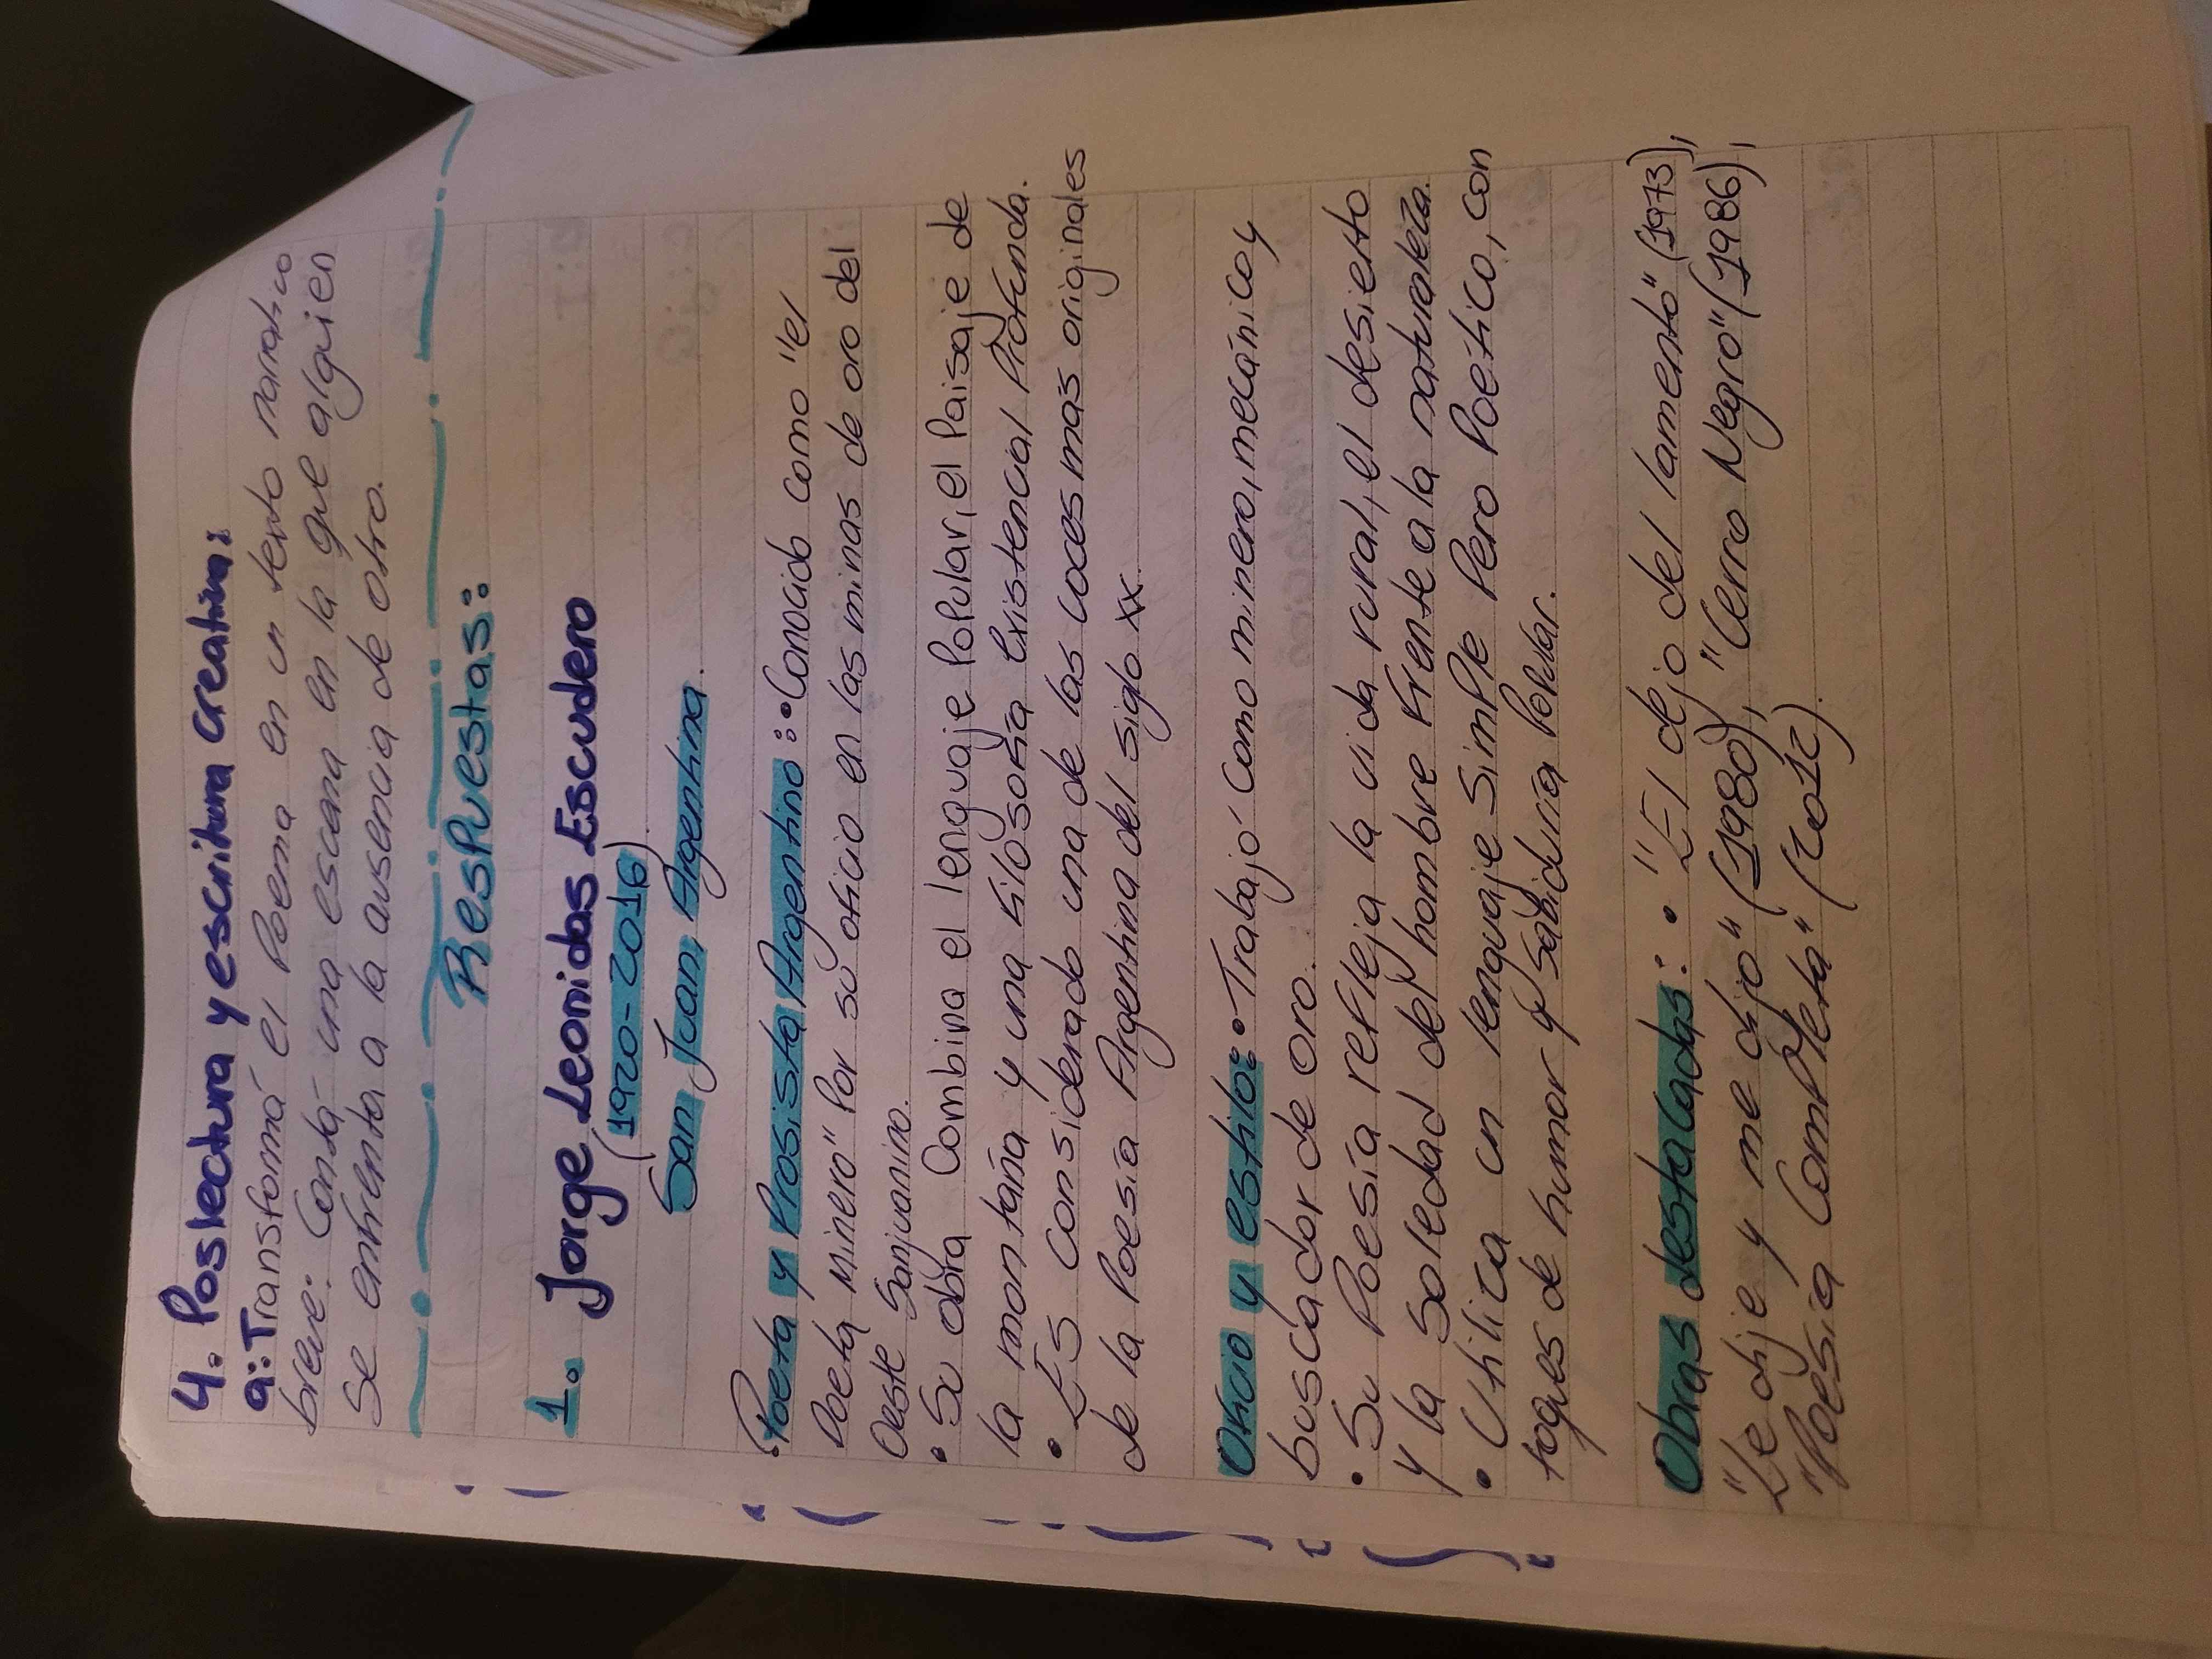 4. Poslectura y escritura creativa:
a: Transformá el Poema en un texto narrativo
breve: Contá una escena en la que alguien
se enfrenta a la ausencia de otro.
Respuestas:
1. Jorge Leonidas Escudero
(1920-2016)
San Juan, Argentina.
Poeta y Prosista Argentino: • Conocido como "el
Poeta Minero" Por su oficio en las minas de oro del
Oeste Sanjuanino.
• Su obra Combina el lenguaje Popular, el Paisaje de
la montaña y una filosofía existencial Profunda.
• Es considerado una de las voces mas originales
de la Poesía Argentina del siglo xx.
Oficio y estilo: • Trabajó como minero, mecánico y
buscador de oro.
• Su Poesía refleja la vida rural, el desierto
y la soledad del hombre frente a la naturaleza.
• Utiliza un lenguaje simple Pero Poético, con
toques de humor y sabiduría Popular.
Obras destacadas: • "El dejo del lamento" (1973),
"Le dije y me dijo" (1980), "Cerro Negro" (1986),
"Poesía Completa" (2012).